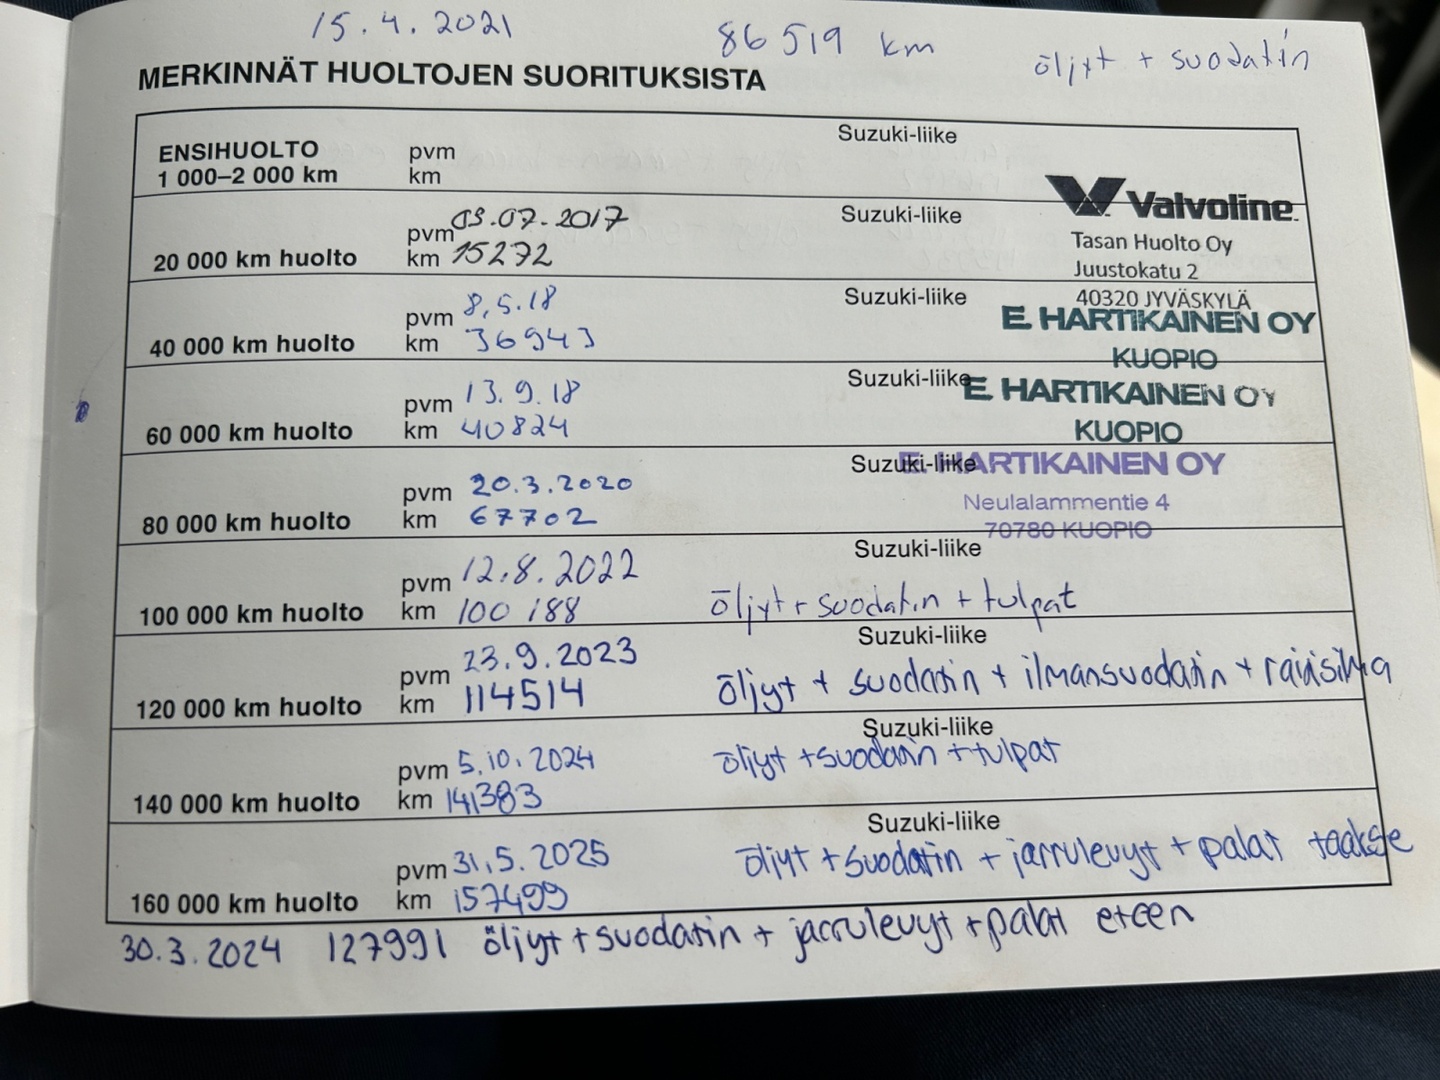 15.4.2021 86 519 km öljyt + suodatin
MERKINNÄT HUOLTOJEN SUORITUKSISTA
ENSIHUOLTO pvm Suzuki-liike
1 000–2 000 km km
Valvoline
pvm 03.07.2017 Suzuki-liike
20 000 km huolto km 15272
Tasan Huolto Oy
Juustokatu 2
40320 JYVÄSKYLÄ
pvm 8.5.18 Suzuki-liike
40 000 km huolto km 36943
E. HARTIKAINEN OY
KUOPIO
pvm 13.9.18 Suzuki-liike
60 000 km huolto km 40824
E. HARTIKAINEN OY
KUOPIO
pvm 20.3.2020 Suzuki-liike
80 000 km huolto km 67702
E. HARTIKAINEN OY
Neulalammentie 4
70780 KUOPIO
pvm 12.8.2022 Suzuki-liike
100 000 km huolto km 100 188 öljyt + suodatin + tulpat
pvm 23.9.2023 Suzuki-liike
120 000 km huolto km 114514 öljyt + suodatin + ilmansuodatin +
pvm 5.10.2024 Suzuki-liike
140 000 km huolto km 141383 öljyt + suodatin + tulpat
pvm 31.5.2025 Suzuki-liike
160 000 km huolto km 157499 öljyt + suodatin + jarrulevyt + palat taakse
30.3.2024 127991 öljyt + suodatin + jarrulevyt + palat eteen